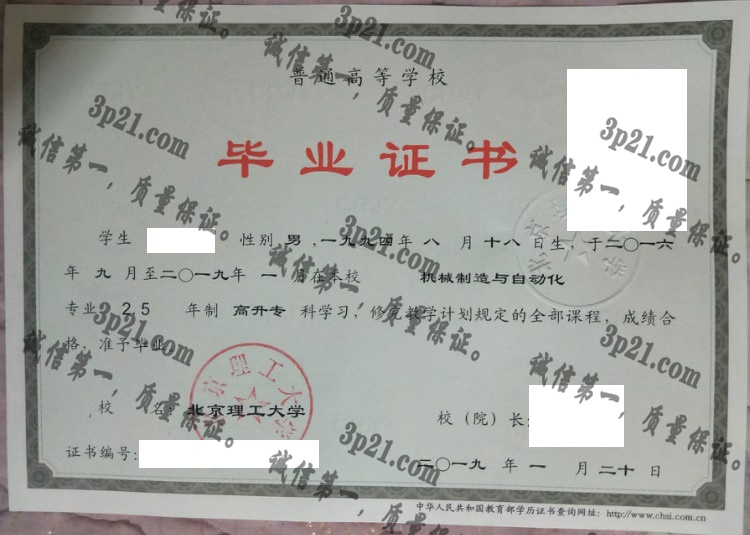 普通高等学校
毕业证书
学生 性别 男 ,一九九四年 八 月 十八日生, 于二〇一六
年 九 月至二〇一九年 一 月在本校 机械制造与自动化
专业 2.5 年制 高升专 科学习, 修完教学计划规定的全部课程, 成绩合
格, 准予毕业
校 名: 北京理工大学
校（院）长:
证书编号:
二〇一九 年 一 月 二十 日
中华人民共和国教育部学历证书查询网址: http://www.chsi.com.cn
北京理工大学
3p21.com
诚信第一，质量保证。
3p21.com
诚信第一，质量保证。
3p21.com
诚信第一，质量保证。
3p21.com
诚信第一，质量保证。
3p21.com
诚信第一，质量保证。
3p21.com
诚信第一，质量保证。
3p21.com
诚信第一，质量保证。